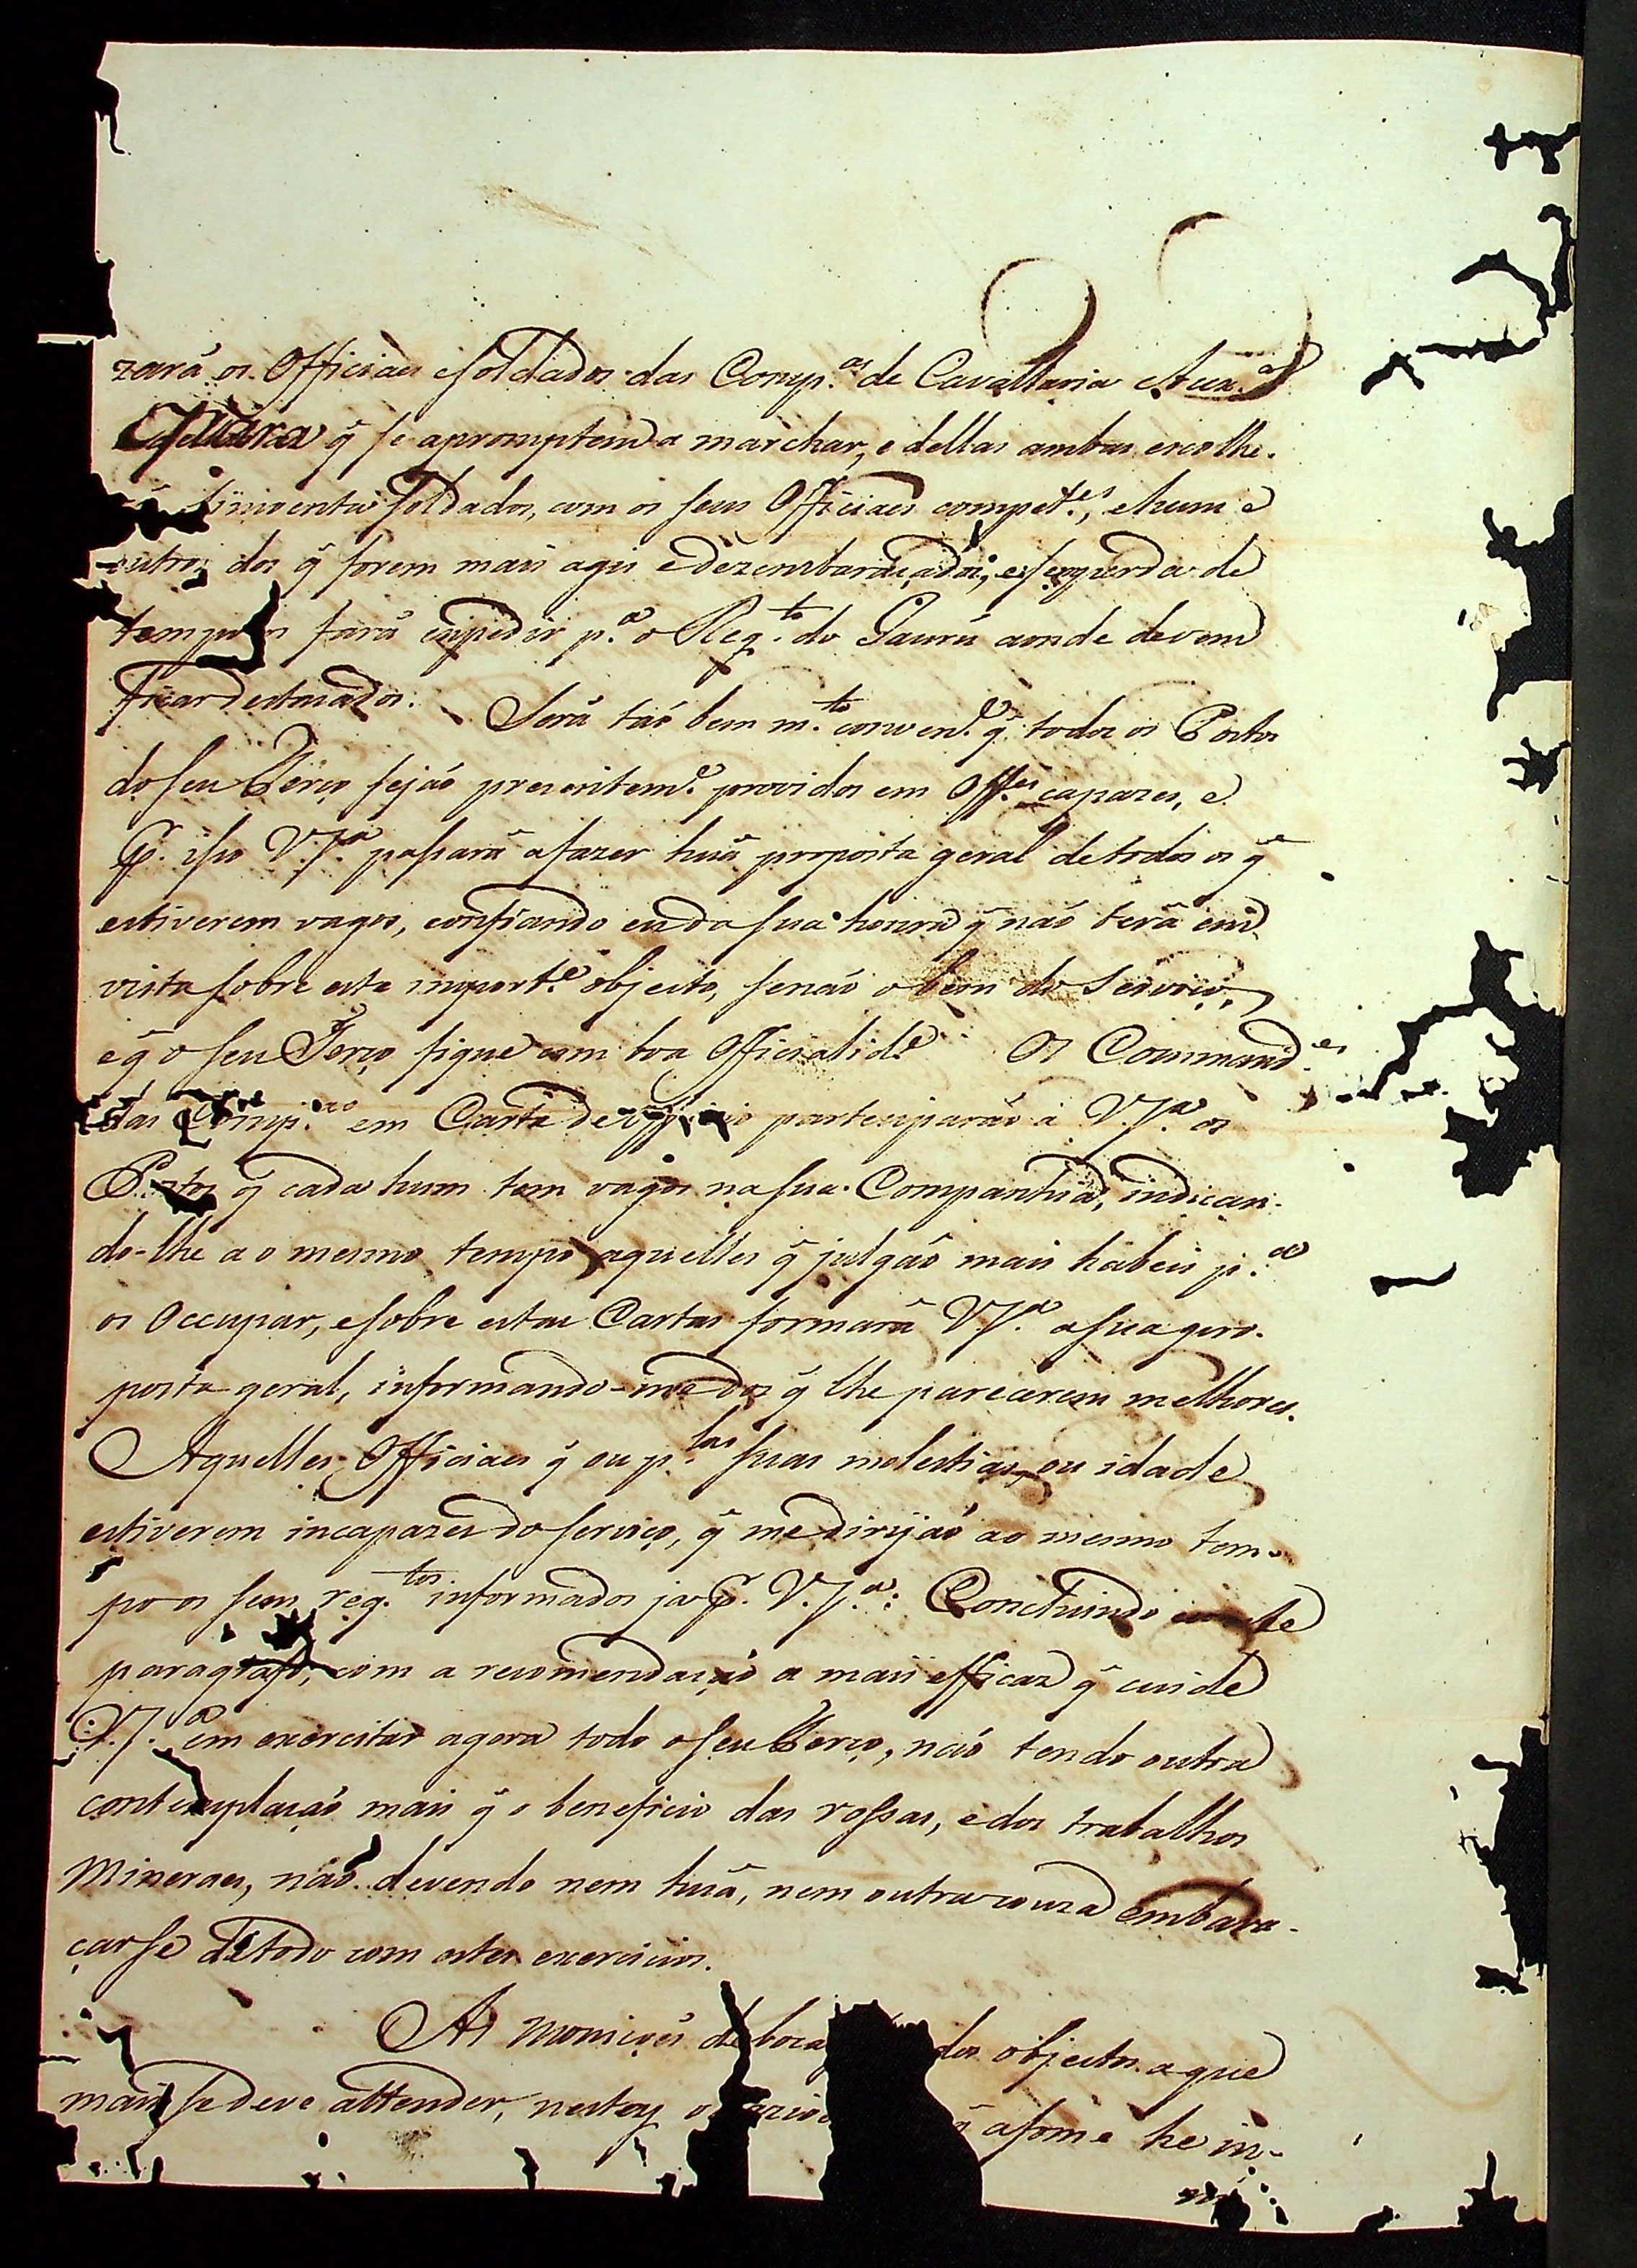 zará os Officiaes e soldados das Comp.as de Cavallaria Aux.ar
q̃ se apromptem a marchar, e dellas ambas escolhe-
sincoenta soldados, com os seus Officiaes compet.es, e hum e
outros dos q̃ forem mais ageis e dezembaraçados, e sem perda de
tempo os fará expedir p.a o Reg.to do Jaurú aonde devem
ficar destacados. Será taõ bem m.to conven.e q̃ todos os Postos
do seu Terço sejaõ prezentem.e providos em Off.es capazes, e
P.r isso V.S.a passará a fazer huã proposta geral de todos os q̃
estiverem vagos, confiando eu da sua honra q̃ naõ terá em
vista sobre este import.e objecto, senaõ o bem do Serviço,
e q̃ o seu Terço fique com boa Officialid.e Os Command.es
das Comp.as em Carta de officio partecipáráõ a V.S.a os
Postos q̃ cada hum tem vagos na sua Companhia, indican-
do-lhe ao mesmo tempo aquelles q̃ julgaõ mais habeis p.a
os Occupar, e sobre estas Cartas formará V.S.a a sua pro-
posta geral, informando-me dos q̃ lhe parecerem melhores.
Aquelles Officiaes q̃ ou p.las suas molestias, ou idade
estiverem incapazes do serviço, q̃ me dirijaõ ao mesmo tem-
po os seus req.tos informados ja P.r V.S.a: Concluindo este
paragrafo, com a recomendaçaõ a mais efficaz q̃ cuide
V.S.a em exercitar agora todo o seu Terço, naõ tendo outra
contemplaçaõ mais q̃ o beneficio das rossas, e dos trabalhos
Mineraes, naõ devendo nem huã, nem outra couza embara-
çarse de todo com estes exercicios.
As moniçoẽs de boca dos objectos a que
mais se deve attender, nestas a fome he in-